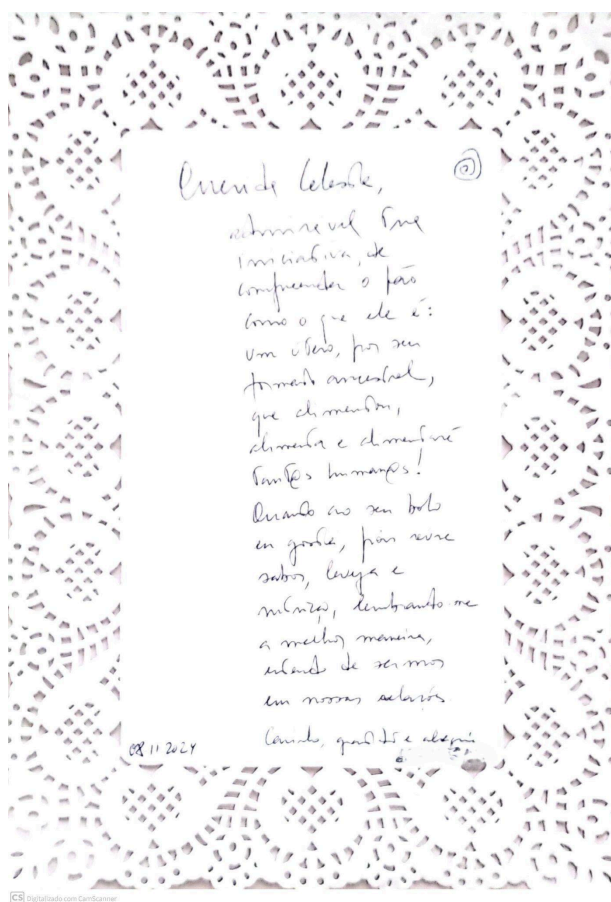 Querida Celeste,
admirável tua
iniciativa, de
compreender o pão
como o que ele é:
um útero, por seu
formato ancestral,
que alimentou,
alimenta e alimentará
tantos humanos!
Quando ao seu bolo
eu gostei, pois
sabor, leveza e
lembrando-me
a melhor maneira,
de sermos
em nossas relações.
Carinho, gratidão e alegria
08 11 2024
CS Digitalizado com CamScanner